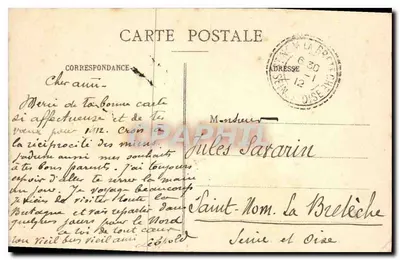 CARTE POSTALE
CORRESPONDANCE
ADRESSE
Cher ami
Merci de ta bonne carte
si affectueuse et de tes
vœux pour 1912. Crois à
la réciprocité des miens.
J'adresse aussi mes souhaits
à tes bons parents. J'ai toujours
espoir d'aller te serrer la main
un jour. Je voyage beaucoup
je viens de visiter toute la
Bretagne et vais repartir dans
quelques jours pour le Nord
à toi de tout cœur
ton vieil
Monsieur
Jules Savarin
Saint-Nom. la Bretèche
Seine et Oise
6 30
12
OISE